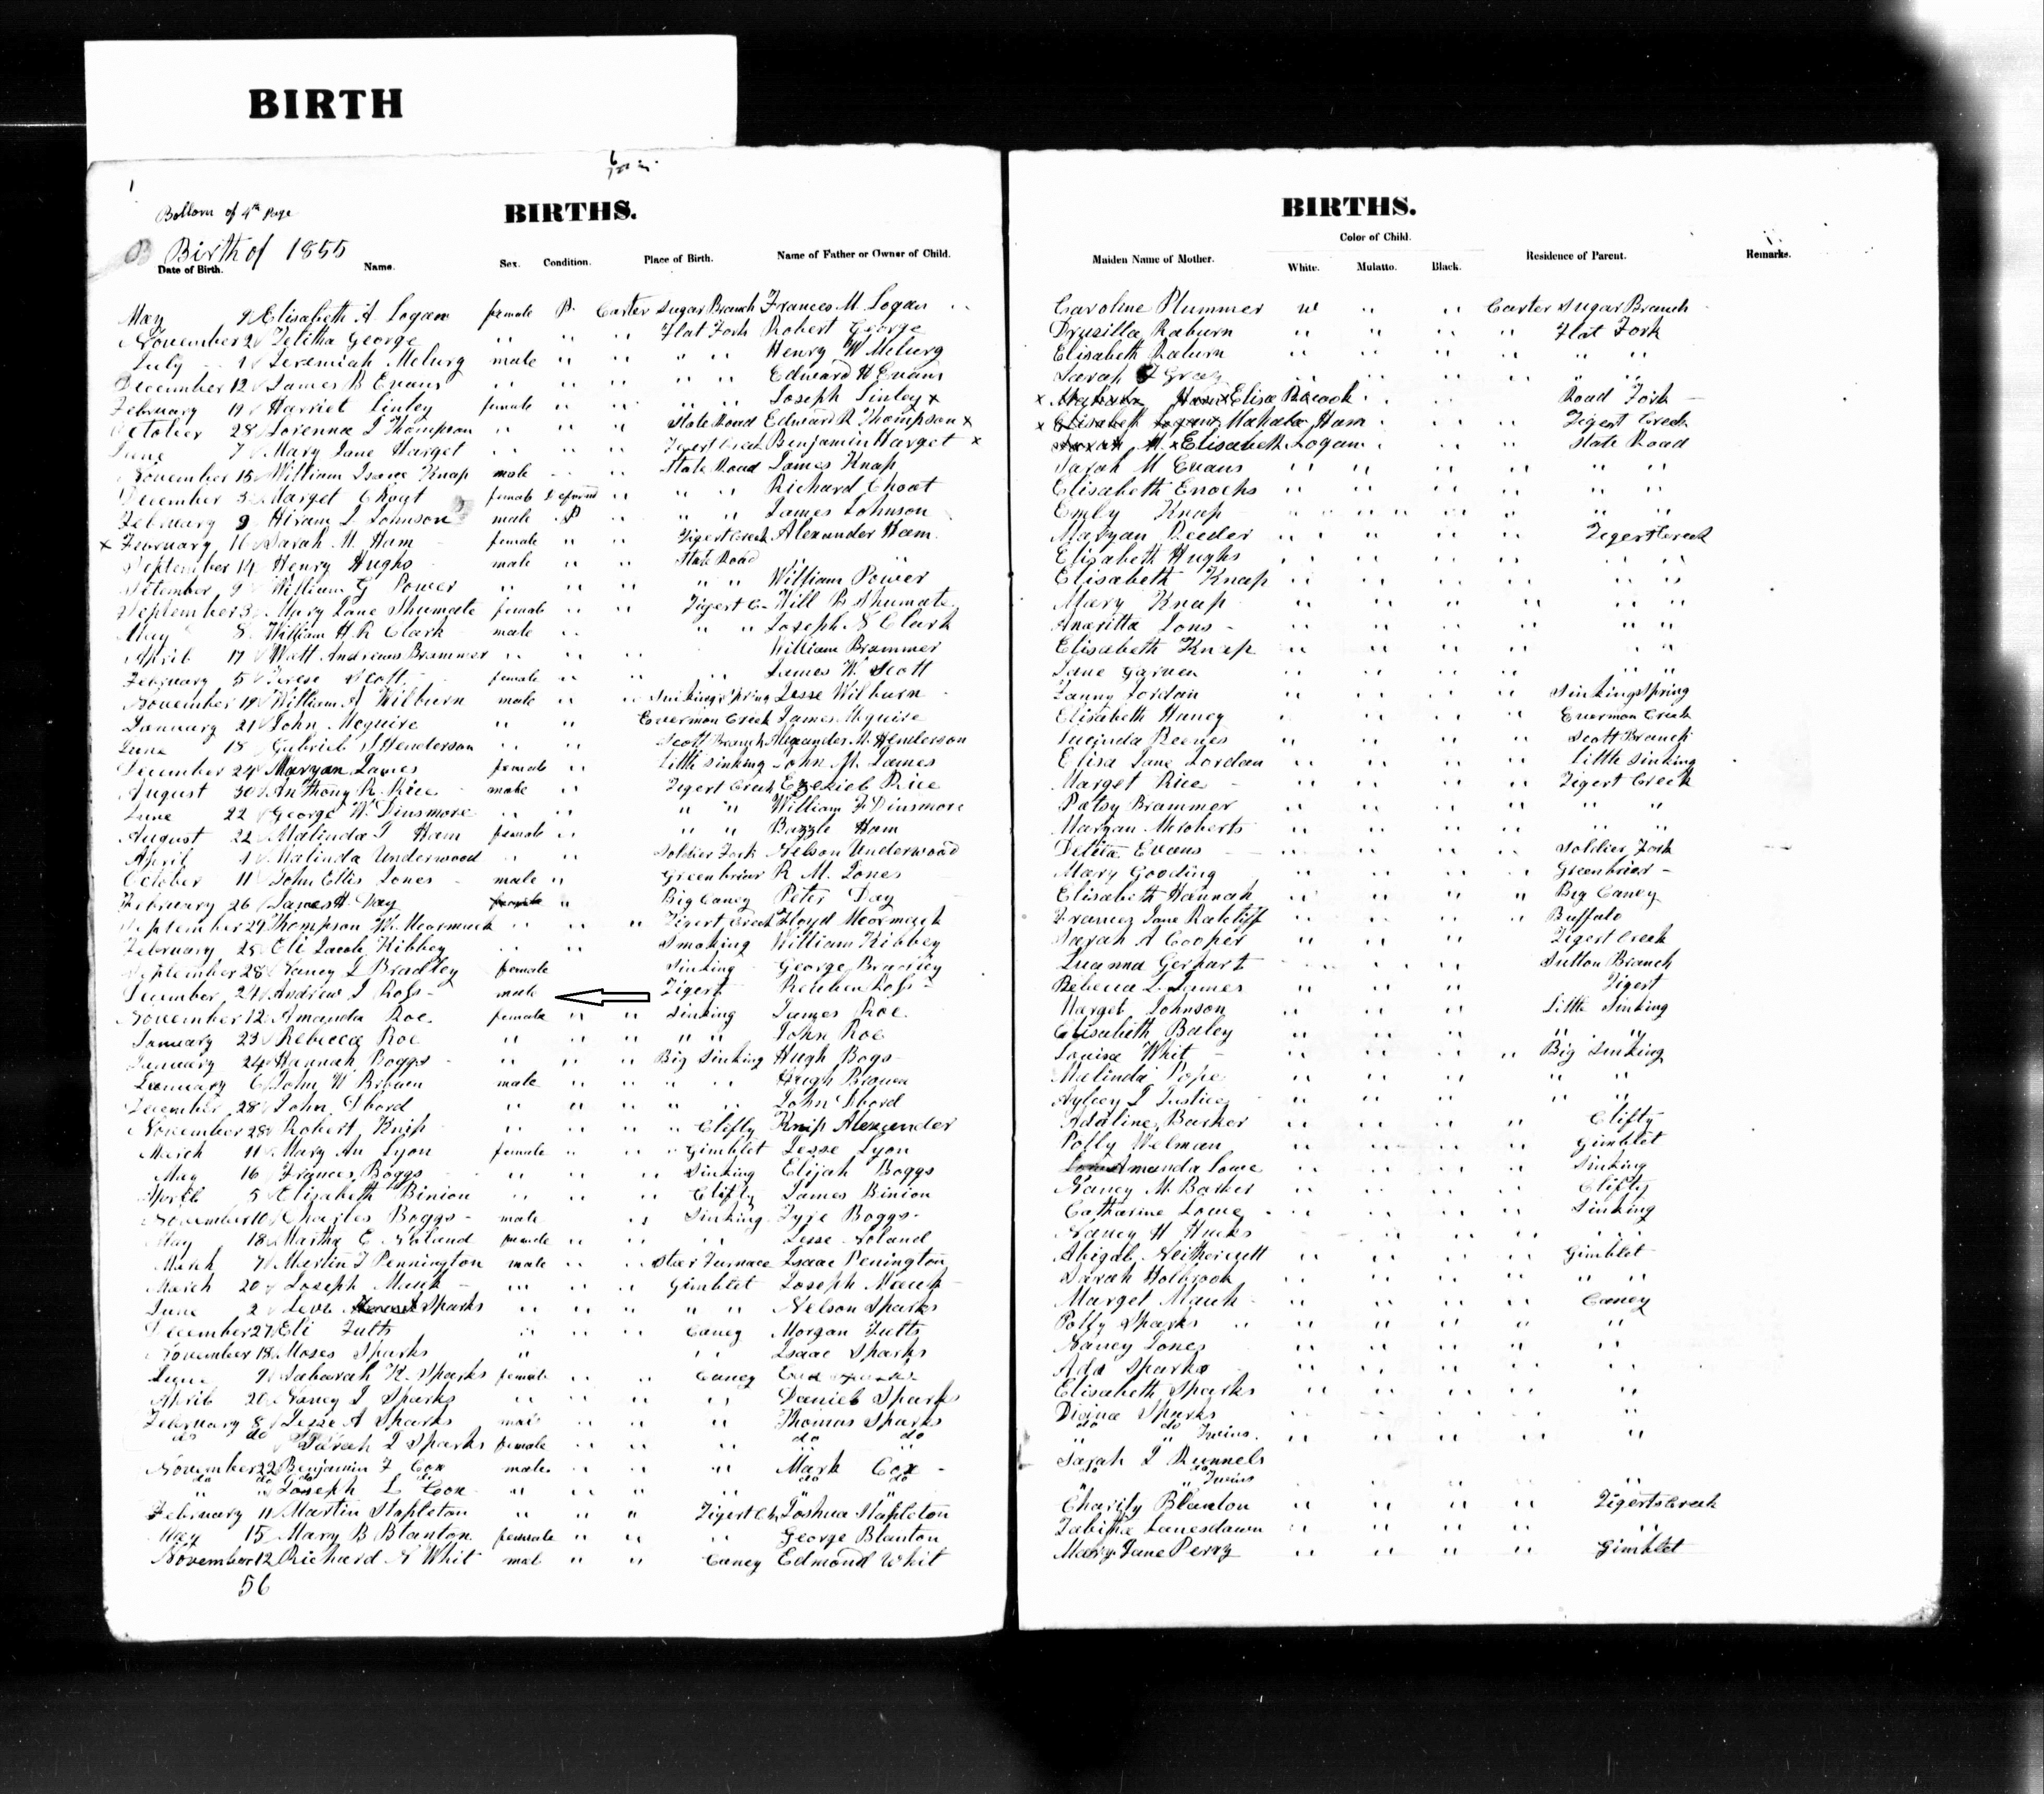 BIRTH
1
Bottom of 4th Page
BIRTHS.
B Birth of 1855
Date of Birth. Name. Sex. Condition. Place of Birth. Name of Father or Owner of Child.
May 9 Elisabeth A Logan female Carter Sugar Branch Frances M. Logan
November 2 Telitha George " " " Flat Fork Robert George
July 1 Jeremiah Meburg male " " " " Henry W Meburg
December 12 James B Evans " " " " " Edward H Evans
February 19 Harriet Linley female " " " " Joseph Linley x
October 28 Lorenna J Thompson " " " State Road Edward R Thompson x
June 7 Mary Jane Harget " " " Tigert Creek Benjamin Harget x
November 15 William Isaac Knap male " " State Road James Knap
December 5 Marget Choat female Deformed " " " Richard Choat
February 9 Hiram L Johnson male " " " James Johnson
x February 16 Sarah M Ham female " " Tigert Creek Alexander Ham
September 14 Henry Hughs male " " State Road "
September 9 William G Power " " " " " William Power
September 3 Mary Jane Shumate female " " Tigert C. Will B Shumate
May 8 William H R Clark male " " " Joseph N Clark
April 17 Watt Andrews Brammer " " " William Brammer
February 5 Scott female " " James W. Scott
November 19 William A Wilburn male " " Sinking Spring Jesse Wilburn
January 21 John Mcguire " " Everman Creek James Mcguire
June 18 Gabriel S Henderson " " Scott Branch Alexander M Henderson
December 24 Maryan James female " Little Sinking John M. James
August 30 Anthony R. Rice male " Tigert Creek Ezekieb Rice
June 22 George W. Dinsmore " " " " William F Dinsmore
August 22 Malinda J Ham female " " " Bazzle Ham
April 1 Malinda Underwood " " Soldier Fork Nelson Underwood
October 11 John Ellis Jones male " Greenbriar R M. Jones
February 26 James H. Day " Big Caney Peter Day
September 29 Thompson W. Mcormack " " " Tigert Creek Floyd Mcormack
February 25 Eli Jacob Kibbey " " Smoking William Kibbey
September 28 Nancy J Bradley female Sinking George Bradley
December 24 Andrew J Ross male Tigert Reuben Ross
November 12 Amanda Roe female " " Sinking James Roe
January 23 Rebecca Roe " " " " " John Roe
January 24 Hannah Boggs " " " Big Sinking Hugh Bogs
January 6 John W Brown male " " " " Hugh Brown
December 28 John Dbord " " " " " John Dbord
November 28 Robert Knip " " " " Clifty Knip Alexander
March 11 Mary An Lyon female " " Gimblet Jesse Lyon
May 16 Frances Boggs " " " Sinking Elijah Boggs
April 5 Elizabeth Binion " " " Clifty James Binion
November 10 Charles Boggs male " Sinking Tyre Boggs
May 18 Martha C Noland female " " " Jesse Noland
March 7 Martin J Pennington male " " Star Furnace Isaac Penington
March 20 Joseph Mauk " " " Gimblet Joseph Mauk
June 2 Levi Sparks " " " " " Nelson Sparks
December 27 Eli Fults " " " Caney Morgan Fults
November 18 Moses Sparks " " " Isaac Sparks
June 9 Sabarah K. Sparks female " " Caney
April 20 Nancy J Sparks " " " " Daniel Sparks
February 8 Jesse A Sparks male " " " Thomas Sparks
do do Sarah J Sparks female " " " do do
November 22 Benjamin F Cox males " " " Mark Cox
do do Joseph L Cox " " " " do do
February 11 Martin Stapleton " " " Tigert Ck Joshua Stapleton
May 15 Mary B Blanton female " " " George Blanton
November 12 Richard A Whit mal " " Caney Edmond Whit
56
BIRTHS.
Color of Child.
Maiden Name of Mother. White. Mulatto. Black. Residence of Parent. Remarks.
Caroline Plummer w " " Carter Sugar Branch
Drusilla Raburn " " " " Flat Fork
Elisabeth Raburn " " " " " "
Sarah J Gray " " " " " "
x Elisa Pecock " " " Road Fork
x Mahala Ham " " " Tigert Creek
Elisabeth Logan " " " State Road
Sarah M Evans " " " " " "
Elisabeth Enochs " " " " " "
Emly Knap " " " " " "
Maryan Reeder " " " " Tigert Creek
Elisabeth Hughs " " " " " "
Elisabeth Knap " " " " " "
Mary Knap " " " " " "
Anaritta Jons " " " " " "
Elisabeth Knap " " " " " "
Jane Garner " " " " "
Fanny Jordan " " " " Sinking Spring
Elisabeth Haney " " " " Everman Creek
Lucinda Reeves " " " " Scott Branch
Elisa Jane Jordan " " " " Little Sinking
Marget Rice " " " " Tigert Creek
Patsy Brammer " " " " " "
Maryan Mcroberts " " " " " "
Delita Evans " " " Soldier Fork
Mary Gooding " " " " Greenbriar
Elisabeth Hannah " " " " Big Caney
Frances Jane Ratcliff " " " " Buffalo
Sarah A Cooper " " " Tigert Creek
Luanna Gerhart " " " Sutton Branch
Rebecca L. James " " " Tigert
Marget Johnson " " " Little Sinking
Elisabeth Baley " " " " "
Louisa Whit " " " " Big Sinking
Malinda Pope " " " " "
Aylsey J Justice " " " " "
Adaline Barker " " " Clifty
Polly Welman " " " " Gimblet
Amanda Lowe " " " " Sinking
Nancy M. Barker " " " " Clifty
Catharine Lowe " " " " Sinking
Nancy H Hicks " " " " "
Abigale Nethercutt " " " " Gimblet
Sarah Holbrook " " " " " "
Marget Mauk " " " " Caney
Polly Sparks " " " " "
Nancy Jones " " " " "
Ada Sparks " " " " "
Elisabeth Sparks " " " " "
Divina Sparks " " " " "
do do Twins. " " " " "
Sarah J Runnels
do " Twins " " " " "
Charity Blanton " " " " Tigerts Creek
Tabitha Lanesdawn " " " " "
Mary Jane Perry " " " " Gimblet